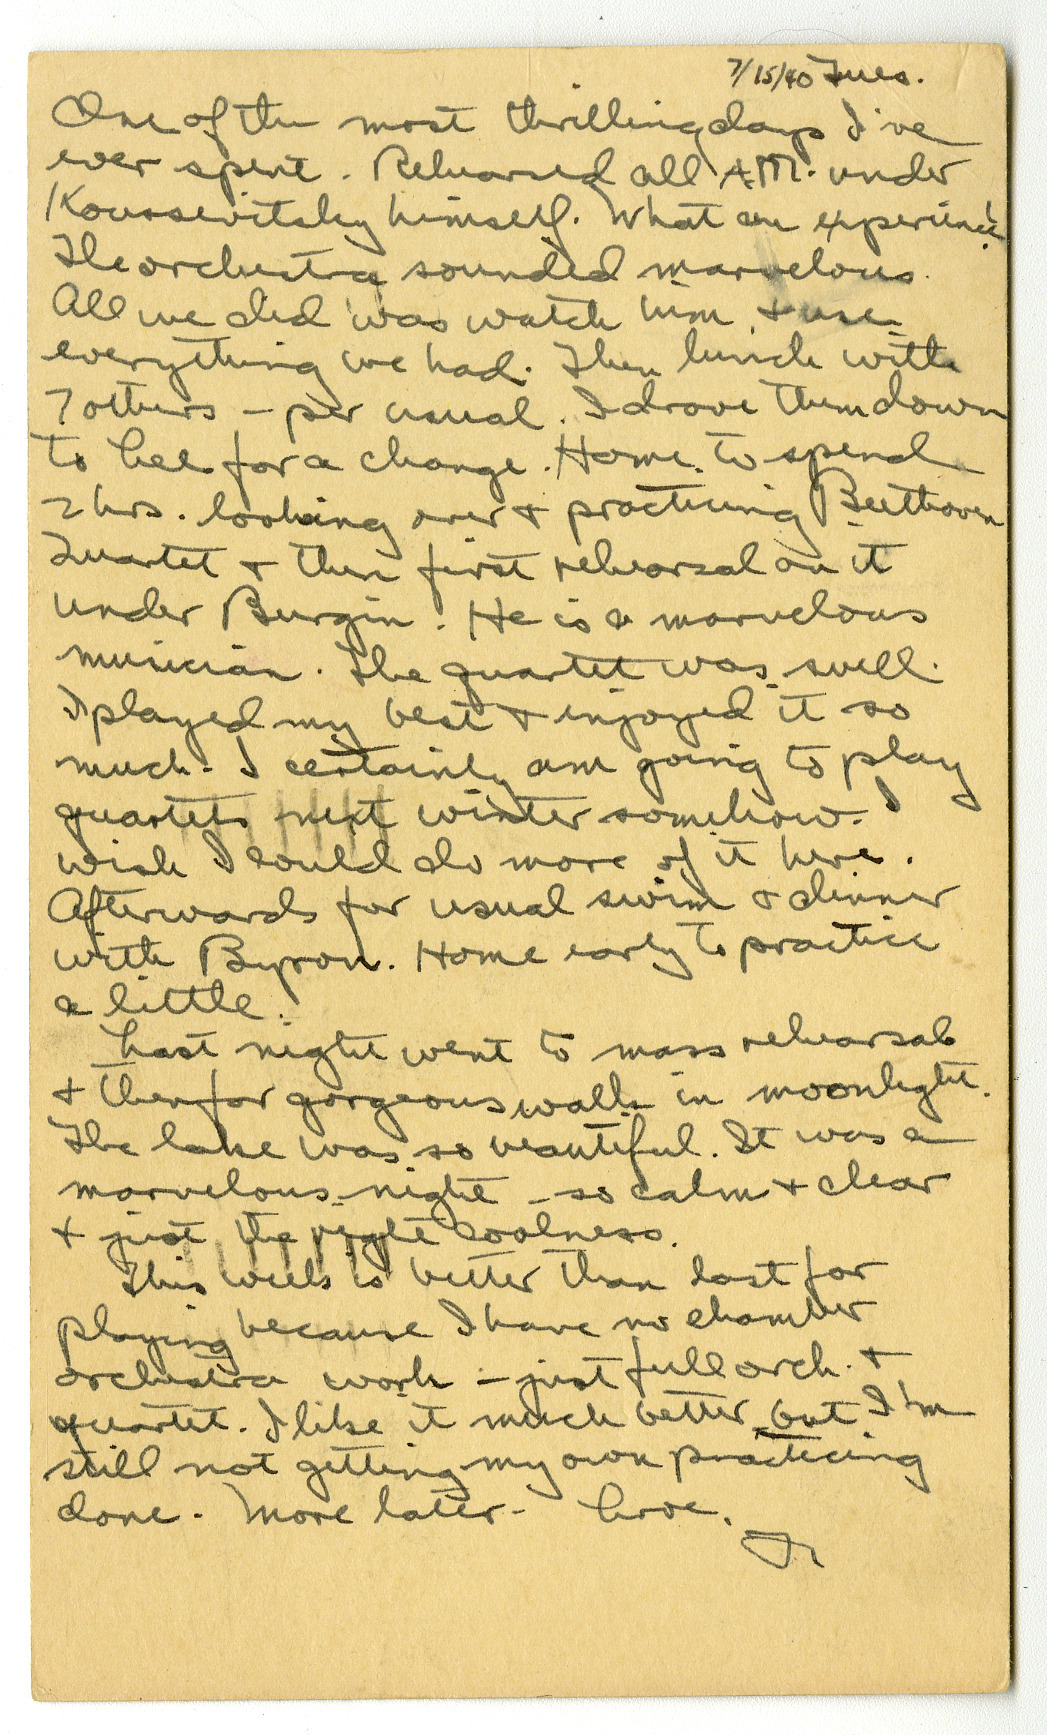 7/15/40 Tues.
One of the most thrilling days I've
ever spent. Rehearsed all A.M. under
Koussevitsky himself. What an experience!
The orchestra sounded marvelous.
All we did was watch him & use
everything we had. Then lunch with
7 others – per usual. I drove them down
to Lee for a change. Home to spend
2 hrs. looking over & practicing Beethoven
Quartet & then first rehearsal on it
under Burgin! He is a marvelous
musician. The quartet was swell.
I played my best & enjoyed it so
much. I certainly am going to play
quartets next winter somehow. I
wish I could do more of it here.
Afterwards for usual swim & dinner
with Byron. Home early to practice
a little.
Last night went to mass rehearsal
& then for gorgeous walk in moonlight.
The lake was so beautiful. It was a
marvelous night – so calm & clear
& just the right coolness.
This week is better than last for
playing because I have no chamber
orchestra work – just full orch. &
quartet. I like it much better but I'm
still not getting my own practicing
done. More later – Love,